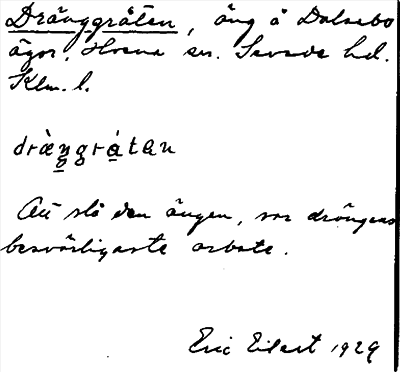 Dränggråten, äng å Dalsebo
ägor. Hvena sn. Sevede hd.
Klm. l.
dràŋgrátən
Att slå den ängen, var drängens
besvärligaste arbete.
Eric Eilert 1929